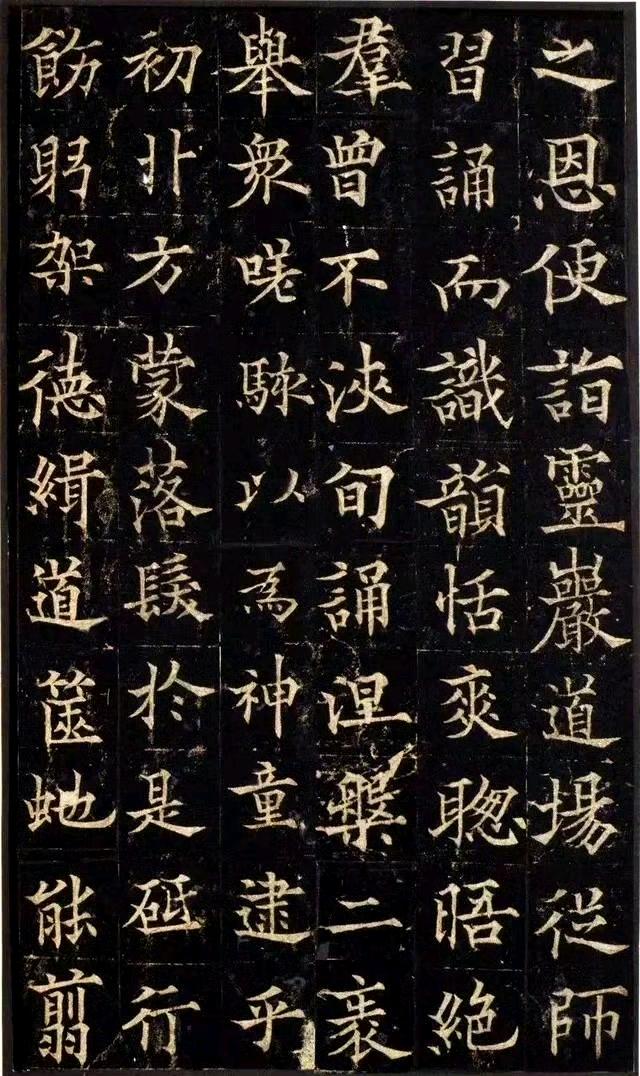 之恩便詣靈巖道場從師
習誦而識韻恬爽聰晤絕
羣曾不浹旬誦涅槃二袠
舉衆嗟騋以為神童逮乎
初卝方蒙落髮於是砥行
飭躬架德緝道篋虵能翦